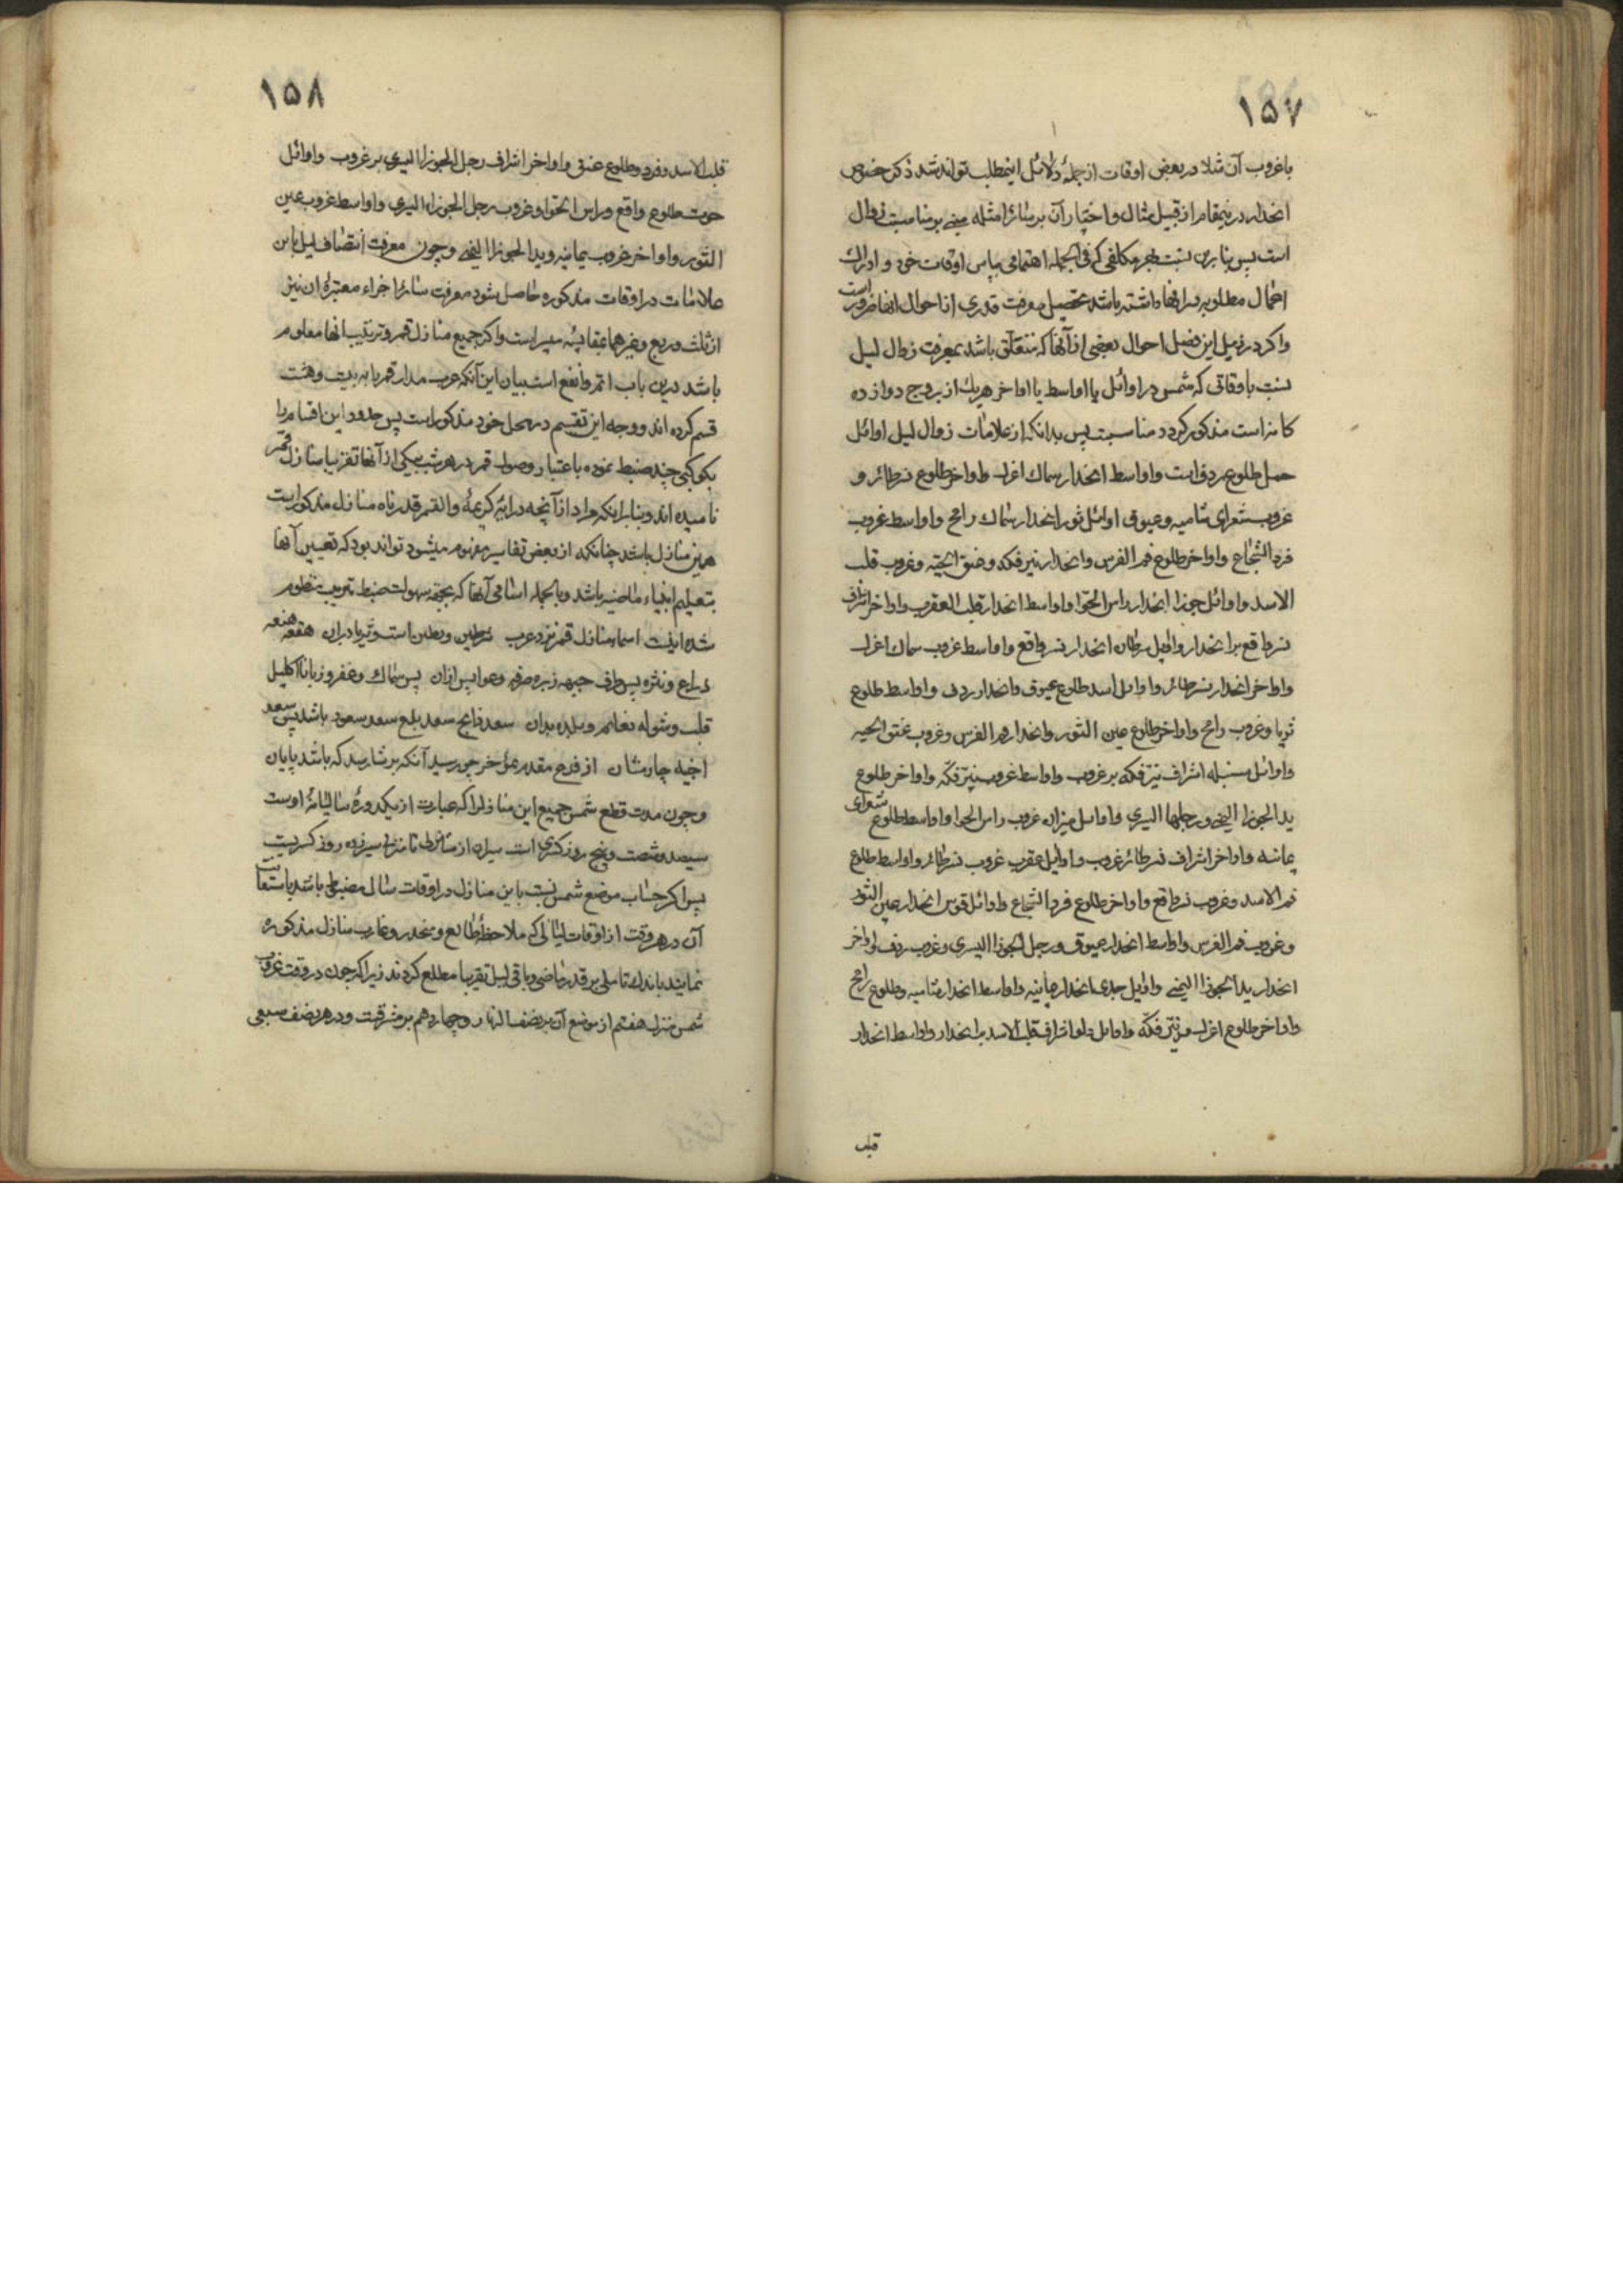 ۱۵۷
با غروب آن مثلا در بعضی اوقات از جملهٔ دلائل اینمطلب تواند شد ذکر خصوص
انحدار درینمقام از قبیل مثال و اختیار آن بر سائر امثله مبنی بر مناسبت زوال
است پس بنابرین نسبت بهر مکلفی که فی الجمله اهتمامی بپاس اوقات خود و ادراک
اعمال مطلوبه در آنها داشته باشد تحصیل معرفت قدری از احوال آنها ضرور است
و اگر در ذیل این فصل احوال بعضی از آنها که متعلق باشد بمعرفت زوال لیل
نسبت باوقاتی که شمس در اوائل یا اواسط یا اواخر هریک از بروج دوازده
کانه است مذکور گردد مناسبت پس بدانکه از علامات زوال لیل اوائل
حمل طلوع ردف است و اواسط انحدار سماک اعزل و اواخر طلوع نسر طائر و
غروب شعرای شامیه و عیوق و اوائل ثور انحدار سماک رامح و اواسط غروب
فرد الشجاع و اواخر طلوع فم الفرس و انحدار نیر فکه و عنق الحیه و غروب قلب
الاسد و اوائل جوزا انحدار راس الحوا و اواسط انحدار قلب العقرب و اواخر اشراف
نسر واقع بر انحدار و اوایل سرطان انحدار نسر واقع و اواسط غروب سماک اعزل
و اواخر انحدار نسر طائر و اوایل اسد طلوع عیوق و انحدار ردف و اواسط طلوع
ثریا و غروب رامح و اواخر طلوع عین الثور و انحدار فم الفرس و غروب عنق الحیه
و اوائل سنبله اشراف نیر فکه بر غروب و اواسط غروب نیر فکه و اواخر طلوع
ید الجوزا الیمنی و رجلها الیسری و اوایل میزان غروب راس الحوا و اواسط طلوع شعرای
یمانیه و اواخر اشراف نسر طائر غروب و اوایل عقرب غروب نسر طائر و اواسط طلوع
فم الاسد و غروب نسر واقع و اواخر طلوع فرد الشجاع و اوائل قوس انحدار عین الثور
و غروب فم الفرس و اواسط انحدار عیوق و رجل الجوزا الیسری و غروب ردف و اواخر
انحدار ید الجوزا الیمنی و اوایل جدی انحدار یمانیه و اواسط انحدار شامیه و طلوع رامح
و اواخر طلوع اعزل و نیر فکه و اوایل دلو اشراف قلب الاسد بر انحدار و اواسط انحدار
قلب
۱۵۸
قلب الاسد و فرد و طلوع عنق و اواخر اشراف رجل الجوزا الیسری بر غروب و اوائل
حوت طلوع واقع و راس الحوا و غروب رجل الجوزاء الیسری و اواسط غروب عین
الثور و اواخر غروب یمانیه و ید الجوزا الیمنی و چون معرفت انتصاف لیل باین
علامات در اوقات مذکوره حاصل شود معرفت سائر اجزاء معتبرهٔ آن نیز
از ثلث و ربع و غیرهما بمقایسه میسر است و اگر جمیع منازل قمر و ترتیب آنها معلوم
باشد درین باب اتم و انفع است بیان این آنکه عرب مدار قمر را به بیست و هشت
قسم کرده اند و وجه این تقسیم در محل خود مذکور است پس حدود این اقسام را
بکوکبی چند ضبط نموده باعتبار وصول قمر در هر شب بیکی از آنها تقریبا منازل قمر
نامیده اند و بنابر اینکه مراد از آنچه در آیهٔ کریمهٔ والقمر قدرناه منازل مذکور است
همین منازل باشد چنانکه از بعض تفاسیر مفهوم میشود تواند بود که تعیین آنها
بتعلیم انبیاء ماضیه باشد و بالجمله اسامی آنها که بجهة سهولت ضبط ترتیب منظوم
شده اینست اسماء منازل قمر نزد عرب شرطین و بطین است و ثریا دبران هقعه هنعه
ذراع و نثره پس طرف جبهه زبره صرفه و عوا پس ازان پس سماک و غفر و زبانا اکلیل
قلب و شوله نعایم و بلده بدان سعد ذابح سعد بلع سعد سعود باشد پس سعد
اخبیه چارمشان از فرع مقدم بمؤخر چو رسید آنکه برشا رسد که باشد پایان
و چون مدت قطع شمس جمیع این منازلرا که عبارت از یکدورهٔ سالیانهٔ اوست
سیصد و شصت و پنج روز کسری است سیران از منزلی تا منزلی سیزده روز کسریست
پس اگر حساب موضع شمس نسبت باین منازل در اوقات سال مضبوط باشد باستعانت
آن در هر وقت از اوقات لیالی که ملاحظهٔ طالع و منحدر و غارب منازل مذکوره
نمایند باندک تاملی بر قدر ماضی و باقی لیل تقریبا مطلع گردند زیرا که چون در وقت غروب
شمس منزل هفتم از موضع آن بر نصف النهار و چهاردهم بر مشرقست و در هر نصف سبعی